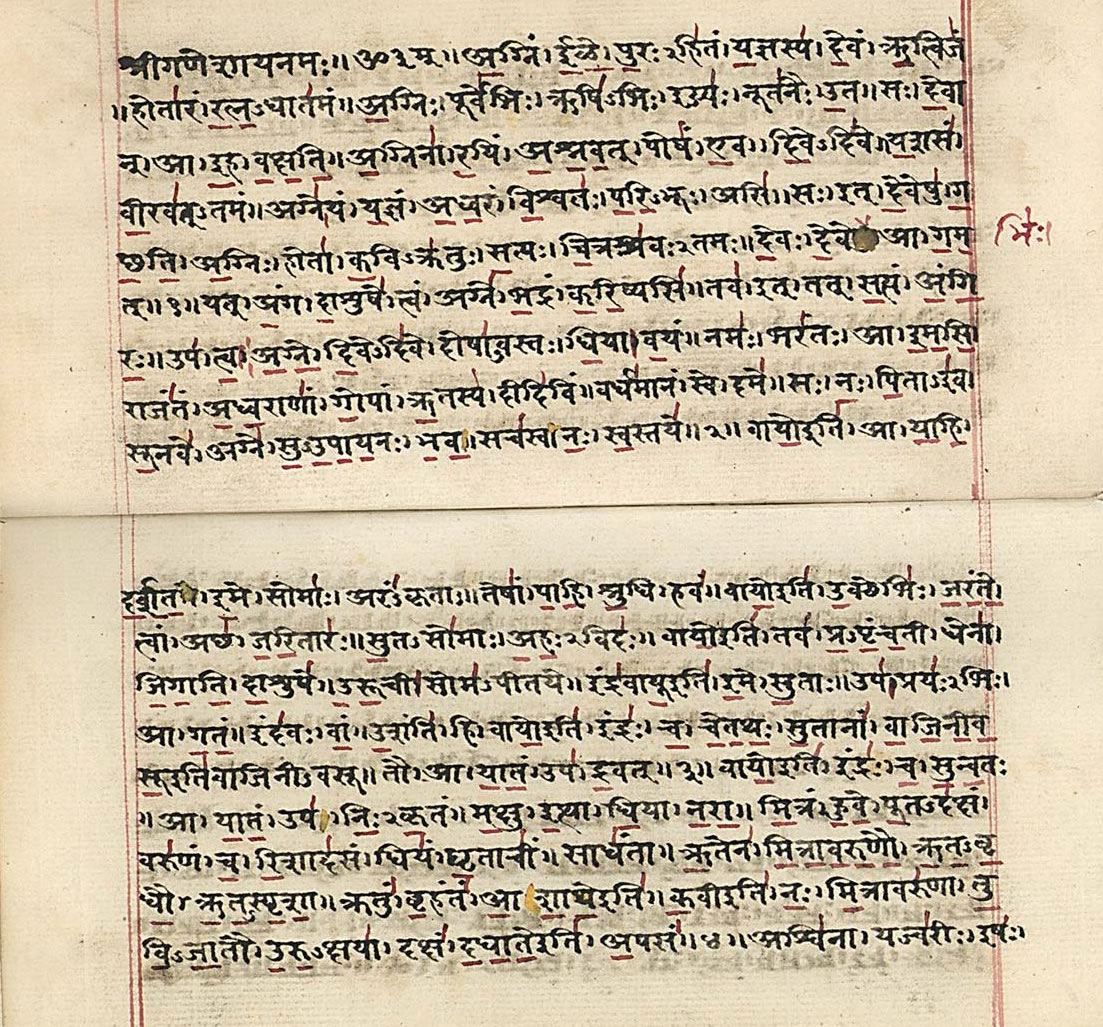 श्रीगणेशायनमः॥ ॐ३म्॥ अ॒ग्निं। ई॒ळे॒। पु॒रः२हि॑तं। य॒ज्ञस्य॑। दे॒वं। ऋ॒त्विजं॑
॥होता॑रं। र॒त्न॒ऽधात॑मं॥ अ॒ग्निः। पूर्वे॑भिः। ऋषि॑ऽभिः। ईड्यः॑। नूत॑नैः। उ॒त॥ सः। दे॒वा
न्। आ। इ॒ह। व॒क्ष॒ति॒॥ अ॒ग्निना॑। र॒यिं। अ॒श्न॒व॒त्। पोषं॑। ए॒व। दि॒वेऽदि॑वे॥ य॒शसं॑
वी॒रव॑त्ऽतमं॥ अग्ने॑। यं। य॒ज्ञं। अ॒ध्व॒रं। वि॒श्वतः॑। प॒रि॒ऽभूः। असि॑॥ सः। इत्। दे॒वेषु॑। ग॒
च्छ॒ति॒। अ॒ग्निः। होता॑। क॒विऽक्र॑तुः। स॒त्यः। चि॒त्रश्र॑वः२तमः॥ दे॒वः। दे॒वे आ। ग॒म॒
भिः॑।
त्॥१॥ यत्। अं॒ग। दा॒शुषे॑। त्वं। अग्ने॑। भ॒द्रं। क॒रि॒ष्यसि॑॥ तव॑। इत्। तत्। स॒त्यं। अं॒गि॒
रः॒॥ उप॑। त्वा॒। अ॒ग्ने॒। दि॒वेऽदि॑वे। दोषा॑ऽवस्तः। धि॒या। व॒यं॥ नमः॑। भरं॑तः। आ। इ॒म॒सि॒।
राजं॑तं। अ॒ध्व॒राणां॑। गो॒पां। ऋ॒तस्य॑। दीदि॑विं॥ वर्ध॑मानं। स्वे। दमे॑॥ सः। नः॒। पि॒ताऽइ॑व।
सू॒नवे॑। अग्ने॑। सु॒ऽउ॒पा॒य॒नः। भ॒व॒॥ सच॑स्व। नः॒। स्व॒स्तये॑॥२॥ वायो॒इति॑। आ। या॒हि॒।
द॒र्श॒त॒। इ॒मे। सोमाः॑। अरं॑ऽकृताः॥ तेषां॑। पा॒हि॒। श्रु॒धि। हवं॑॥ वायो॒इति॑। उ॒क्थेभिः॑। ज॒रं॒ते॒।
त्वां। अच्छ॑। ज॒रि॒तारः॑॥ सु॒तऽसो॑माः। अ॒हः॒२विदः॑॥ वायो॒इति॑। तव॑। प्र॒ऽपृं॒च॒ती। धेना॑।
जि॒गा॒ति॒। दा॒शुषे॑॥ उ॒रू॒ची। सोम॑ऽपीतये॥ इंद्र॑वायू॒इति॑। इ॒मे। सु॒ताः॥ उप॑। प्रयः॑२भिः।
आ। ग॒तं॒॥ इंद॑वः। वां॒। उ॒शंति॑। हि॥ वायो॒इति॑। इंद्रः॑। च॒। चे॒त॒थः॒। सु॒तानां॑। वा॒जि॒नी॒व॒
सू॒इति॑वाजिनीऽवसू॥ तौ। आ। या॒तं॒। उप॑। द्र॒वत्॥३॥ वायो॒इति॑। इंद्रः॑। च॒। सु॒न्व॒तः।
। आ। या॒तं॒। उप॑। निः॒२कृ॒तं॥ म॒क्षु। इ॒त्था। धि॒या। न॒रा॒॥ मि॒त्रं। हु॒वे॒। पू॒तऽद॑क्षं।
वरु॑णं। च॒। रि॒शाद॑सं। धियं॑। घृ॒ताचीं॑। साधं॑ता॥ ऋ॒तेन॑। मि॒त्रा॒व॒रु॒णौ॒। ऋ॒त॒ऽवृ॒
धौ॒। ऋ॒त॒ऽस्पृ॒शा॒॥ क्रतुं॑। बृ॒हंतं॑। आ॒शा॒थे॒इति॑॥ क॒वीइति॑। नः॒। मि॒त्रावरु॑णा। तु॒
वि॒ऽजा॒तौ। उ॒रु॒ऽक्षया॑। दक्षं॑। द॒धा॒ते॒इति॑। अ॒पसं॑॥४॥ अश्वि॑ना। यज्व॑रीः। इषः॑।